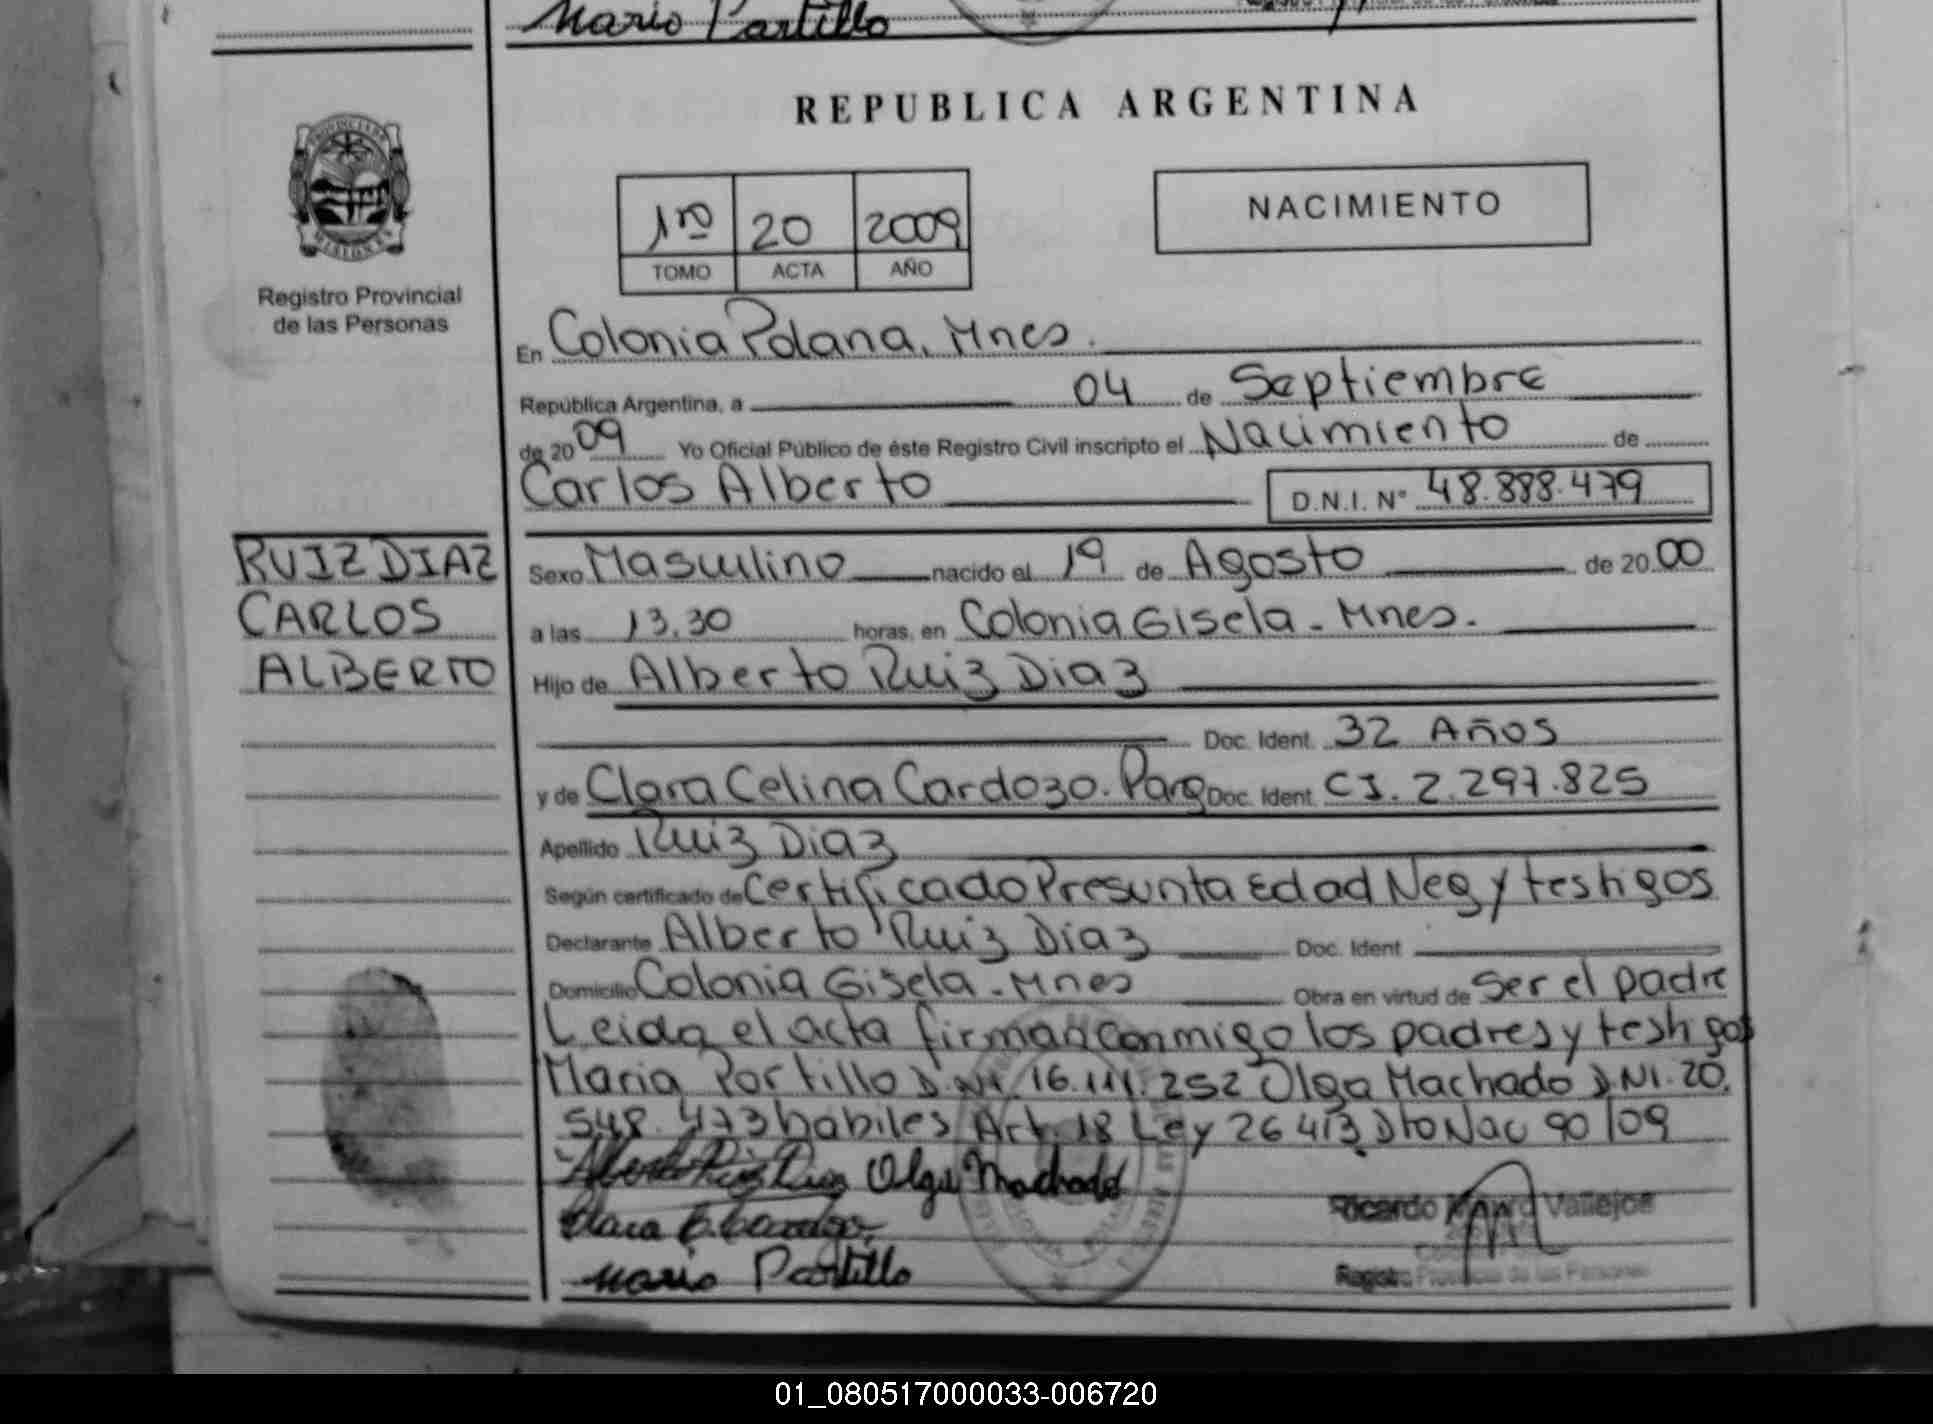 Mario Portillo
REPUBLICA ARGENTINA
1ro 20 2009
TOMO ACTA AÑO
NACIMIENTO
MISIONES
Registro Provincial
de las Personas
En Colonia Polana, Mnes.
República Argentina, a 04 de Septiembre
de 2009 Yo Oficial Público de éste Registro Civil inscripto el Nacimiento de
Carlos Alberto D.N.I. N° 48.888.479
RUIZ DIAZ
CARLOS
ALBERTO
Sexo Masculino nacido el 19 de Agosto de 2000
a las 13.30 horas, en Colonia Gisela - Mnes.
Hijo de Alberto Ruiz Diaz
Doc. Ident. 32 Años
y de Clara Celina Cardozo. Parg Doc. Ident. CI. 2.297.825
Apellido Ruiz Diaz
Según certificado de Certificado Presunta Edad Neg y testigos
Declarante Alberto Ruiz Diaz Doc. Ident
Domicilio Colonia Gisela - Mnes Obra en virtud de Ser el padre
Leida el acta firman conmigo los padres y testigos
Maria Portillo D.NI. 16.111.252 Olga Machado D.NI. 20.
548.473 habiles Art. 18 Ley 26413 Dto Nac 90/09
Alberto Ruiz Diaz Olga Machado
Clara C. Cardozo
Mario Portillo
Ricardo Vallejos
Registro Provincial de las Personas
01_080517000033-006720